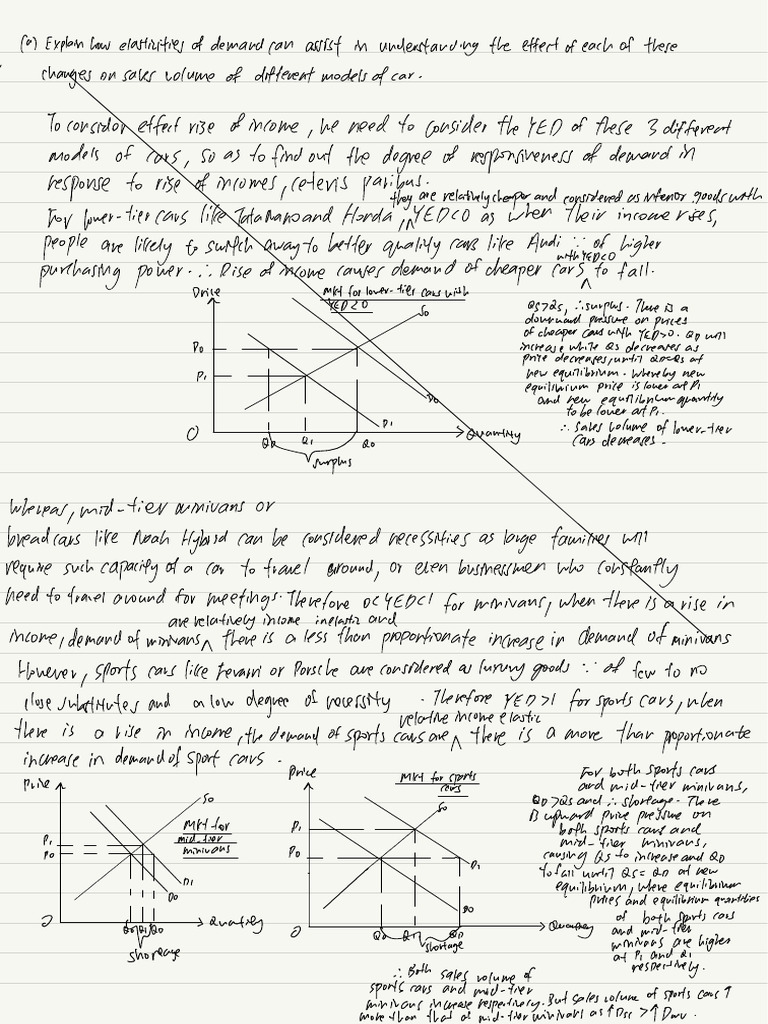 (a) Explain how elasticities of demand can assist in understanding the effect of each of these
changes on sales volume of different models of car.
To consider effect rise of income, we need to consider the YED of these 3 different
models of cars, so as to find out the degree of responsiveness of demand in
response to rise of incomes, ceteris paribus.
they are relatively cheaper and considered as inferior goods with
For lower-tier cars like Tata Nano and Honda, ^ YED<0 as when their income rises,
people are likely to switch away to better quality cars like Audi ∵ of higher
with YED<0
purchasing power. ∴ Rise of income causes demand of cheaper cars ^ to fall.
Price
MKT for lower-tier cars with
YED<0
S0
P0
P1
D0
D1
0
Q0
Q1
Q0
Quantity
surplus
Qs>Qd, ∴ surplus. There is a
downward pressure on prices
of cheaper cars with YED>0. QD will
increase while Qs decreases as
price decreases, until QD=Qs at
new equilibrium. Whereby new
equilibrium price is lower at P1
and new equilibrium quantity
to be lower at P1.
∴ Sales volume of lower-tier
cars decreases.
Whereas, mid-tier minivans or
bread cars like Noah Hybrid can be considered necessities as large families will
require such capacity of a car to travel around, or even businessmen who constantly
need to travel around for meetings. Therefore 0<YED<1 for minivans, when there is a rise in
are relatively income inelastic and
income, demand of minivans ^ there is a less than proportionate increase in demand of minivans
However, sports cars like Ferarri or Porsche are considered as luxury goods ∵ of few to no
close substitutes and a low degree of necessity. Therefore YED>1 for sports cars, when
relative income elastic
there is a rise in income, the demand of sports cars are ^ there is a more than proportionate
increase in demand of sport cars.
Price
S0
MKT for
mid-tier
minivans
P1
P0
D1
D0
0
Q0
Q1
Q0
Quantity
shortage
Price
MKT for sports
cars
S0
P1
P0
D1
D0
0
Q0
Q1
QD
Quantity
shortage
For both sports cars
and mid-tier minivans,
QD>Qs and ∴ shortage. There
is upward price pressure on
both sports cars and
mid-tier minivans,
causing Qs to increase and QD
to fall until Qs=QD at new
equilibrium, where equilibrium
prices and equilibrium quantities
of both sports cars
and mid-tier
minivans are higher
at P1 and Q1
respectively.
∴ Both sales volume of
sports cars and mid-tier
minivans increase respectively. But sales volume of sports cars ↑
more than that of mid-tier minivans as ↑Dsc > ↑Dmv.